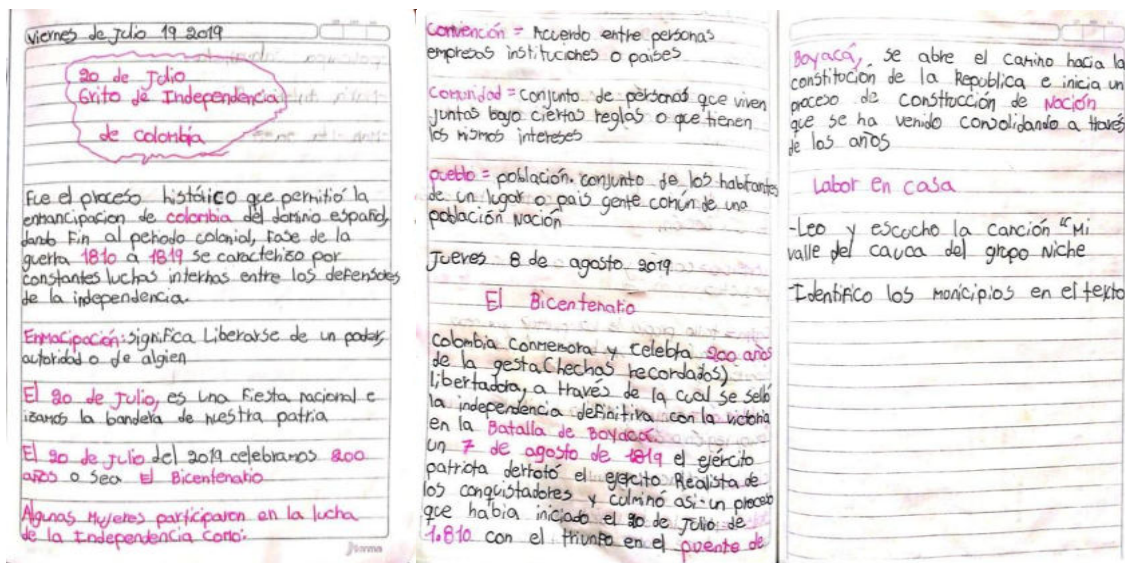 Viernes de Julio 19 2019
20 de Julio
Grito de Independencia
de Colombia
Fue el proceso histórico que permitió la
enmancipacion de colombia del dominio español,
dando Fin al periodo colonial, Fase de la
guerra 1810 a 1819 se caracterizo por
constantes luchas internas entre los defensores
de la independencia.
Enmacipación: significa Liberarse de un poder,
autoridad o de algien
El 20 de Julio, es una Fiesta nacional e
izamos la bandera de nuestra patria
El 20 de Julio del 2019 celebramos 200
años o sea El Bicentenario
Algunas Mujeres participaron en la lucha
de la Independencia Como:
norma
Convención = Acuerdo entre personas
empresas instituciones o países
Comunidad = conjunto de personas que viven
juntas bajo ciertas reglas o que tienen
los mismos intereses
pueblo = población. conjunto de los habitantes
de un lugar o pais gente común de una
población Nación
Jueves 8 de agosto 2019
El Bicentenario
Colombia Conmemora y celebra 200 años
de la gesta (hechos recordados)
libertadora, a través de la cual se selló
la independencia definitiva con la victoria
en la Batalla de Boyacá
un 7 de agosto de 1819 el ejército
patriota derrotó el ejercito Realista de
los conquistadores y culminó asi un proceso
que habia iniciado el 20 de Julio de
1.810 con el triunfo en el puente de
Boyacá, se abre el camino hacia la
constitución de la Republica e inicia un
proceso de construcción de Nación
que se ha venido consolidando a través
de los años
Labor en casa
-Leo y escucho la canción "Mi
valle del cauca del grupo Niche
-Identifico los municipios en el texto